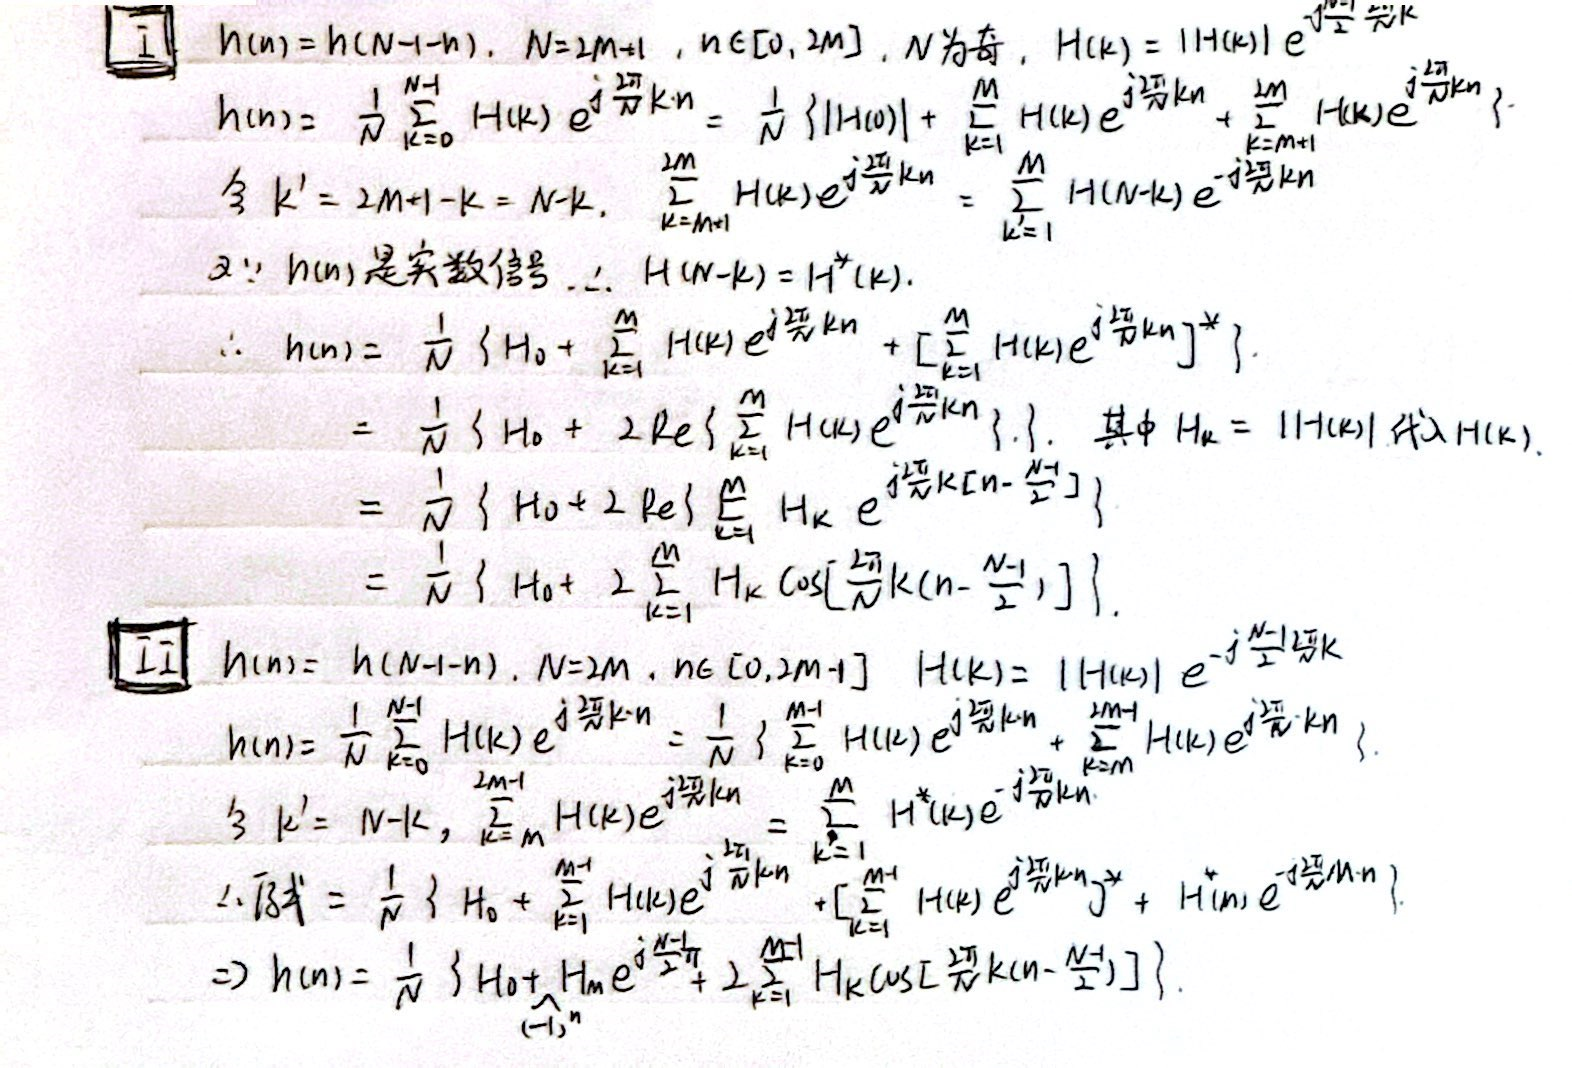 I h(n)=h(N-1-n). N=2M+1, n∈[0,2M]. N为奇, H(k)=|H(k)| e^{-j\frac{N-1}{2}\frac{2π}{N}k}
h(n)= \frac{1}{N} \sum_{k=0}^{N-1} H(k) e^{j\frac{2π}{N}k·n} = \frac{1}{N} {|H(0)| + \sum_{k=1}^{M} H(k) e^{j\frac{2π}{N}kn} + \sum_{k=M+1}^{2M} H(k) e^{j\frac{2π}{N}kn}}.
令 k' = 2M+1-k = N-k. \sum_{k=M+1}^{2M} H(k) e^{j\frac{2π}{N}kn} = \sum_{k'=1}^{M} H(N-k) e^{-j\frac{2π}{N}kn}
又∵ h(n)是实数信号. ∴ H(N-k)=H^*(k).
∴ h(n)= \frac{1}{N} {H_0 + \sum_{k=1}^{M} H(k) e^{j\frac{2π}{N}kn} + [\sum_{k=1}^{M} H(k) e^{j\frac{2π}{N}kn}]^*}.
= \frac{1}{N} {H_0 + 2Re{\sum_{k=1}^{M} H(k) e^{j\frac{2π}{N}kn}}.}. 其中 H_k = |H(k)| 代入H(k).
= \frac{1}{N} {H_0 + 2Re{\sum_{k=1}^{M} H_k e^{j\frac{2π}{N}k[n-\frac{N-1}{2}]}}
= \frac{1}{N} {H_0 + 2\sum_{k=1}^{M} H_k Cos[\frac{2π}{N}k(n-\frac{N-1}{2})]}.
II h(n)=h(N-1-n). N=2M. n∈[0,2M-1] H(k)=|H(k)| e^{-j\frac{N-1}{2}\frac{2π}{N}k}
h(n)= \frac{1}{N} \sum_{k=0}^{N-1} H(k) e^{j\frac{2π}{N}k·n} = \frac{1}{N} {\sum_{k=0}^{M-1} H(k) e^{j\frac{2π}{N}k·n} + \sum_{k=M}^{2M-1} H(k) e^{j\frac{2π}{N}·kn}}.
令 k'= N-k, \sum_{k=M}^{2M-1} H(k) e^{j\frac{2π}{N}kn} = \sum_{k'=1}^{M} H^*(k) e^{-j\frac{2π}{N}kn}.
∴原式 = \frac{1}{N} {H_0 + \sum_{k=1}^{M-1} H(k) e^{j\frac{2π}{N}k·n} + [\sum_{k=1}^{M-1} H(k) e^{j\frac{2π}{N}kn}]^* + H^*(m) e^{-j\frac{2π}{N}M·n}}.
⇒ h(n)= \frac{1}{N} {H_0 + H_m e^{j\frac{N-1}{2}π} + 2\sum_{k=1}^{M-1} H_k cos[\frac{2π}{N}k(n-\frac{N-1}{2})]}.
(-1)^n